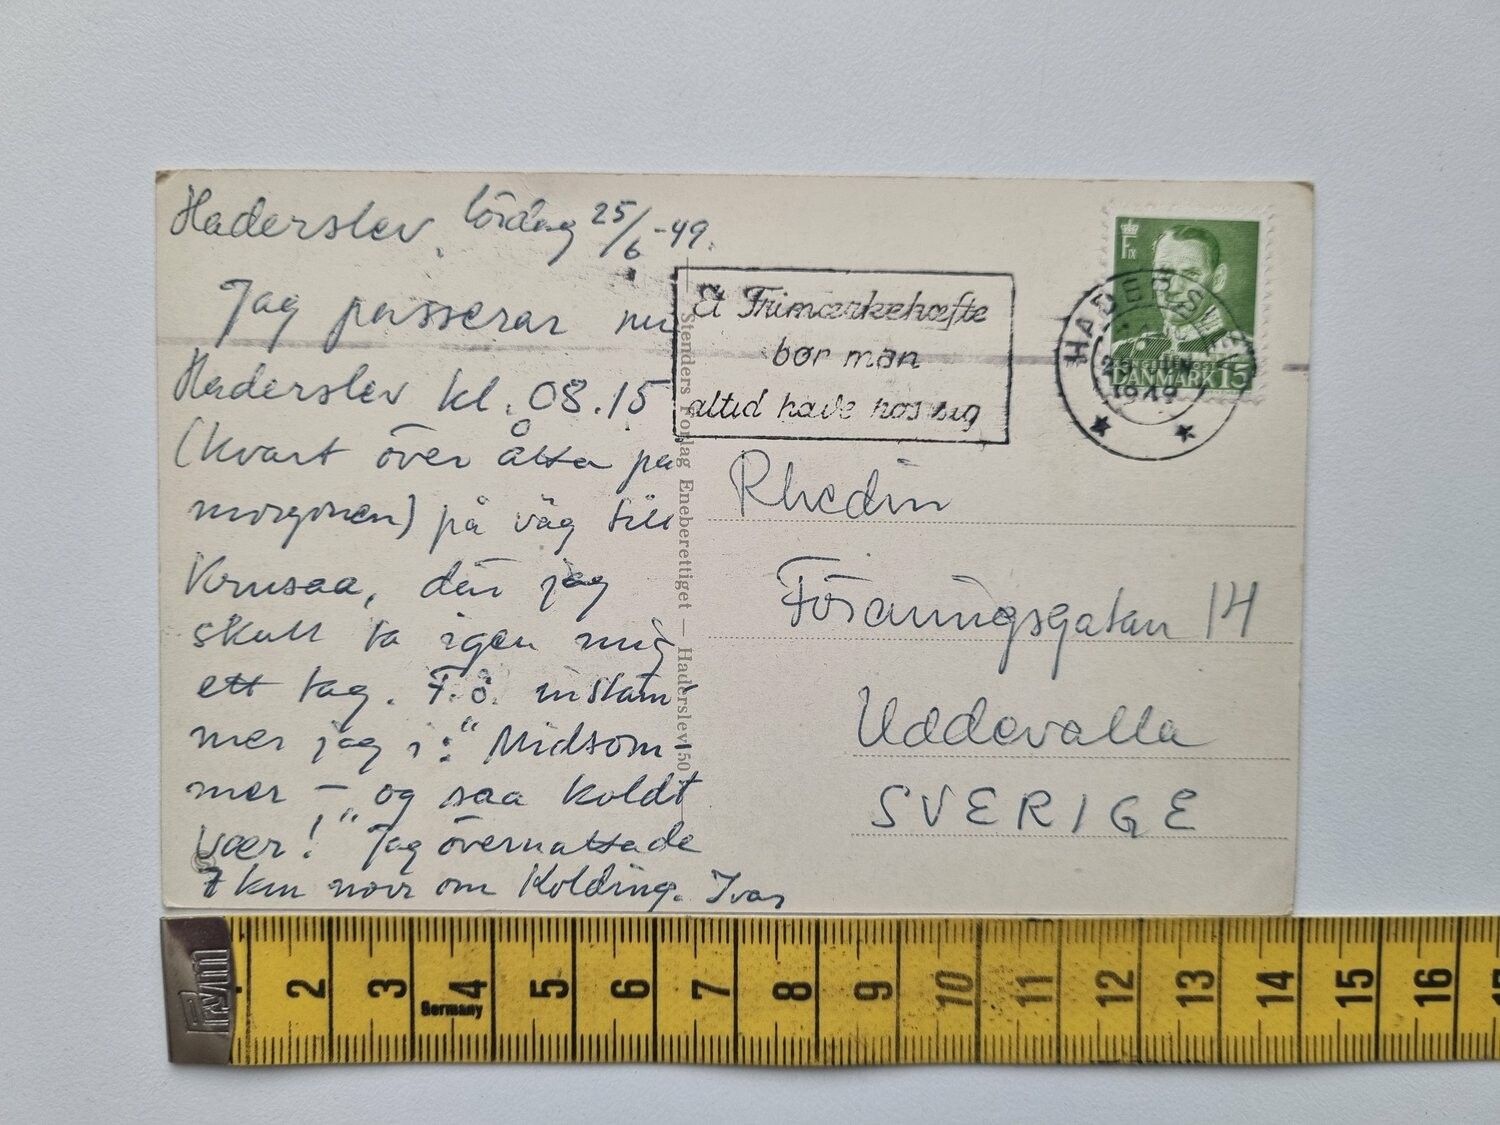 Haderslev, lördag 25/6 -49.
Jag passerar nu
Haderslev kl. 08.15
(kvart över åtta på
morgonen) på väg till
Krusaa, där jag
skall ta igen mig
ett tag. F.ö. instäm-
mer jag i: "Midsom-
mer – og saa koldt
vær!" Jag övernattade
7 km norr om Kolding. Ivar
Stenders Forlag Eneberettiget — Haderslev 50
Et Frimærkehæfte
bør man
altid have hos sig
HADERSLEV
25 JUN
1949
F IX
DANMARK 15
Rhedin
Föreningsgatan 14
Uddevalla
SVERIGE
Prym
Germany
2 3 4 5 6 7 8 9 10 11 12 13 14 15 16 17